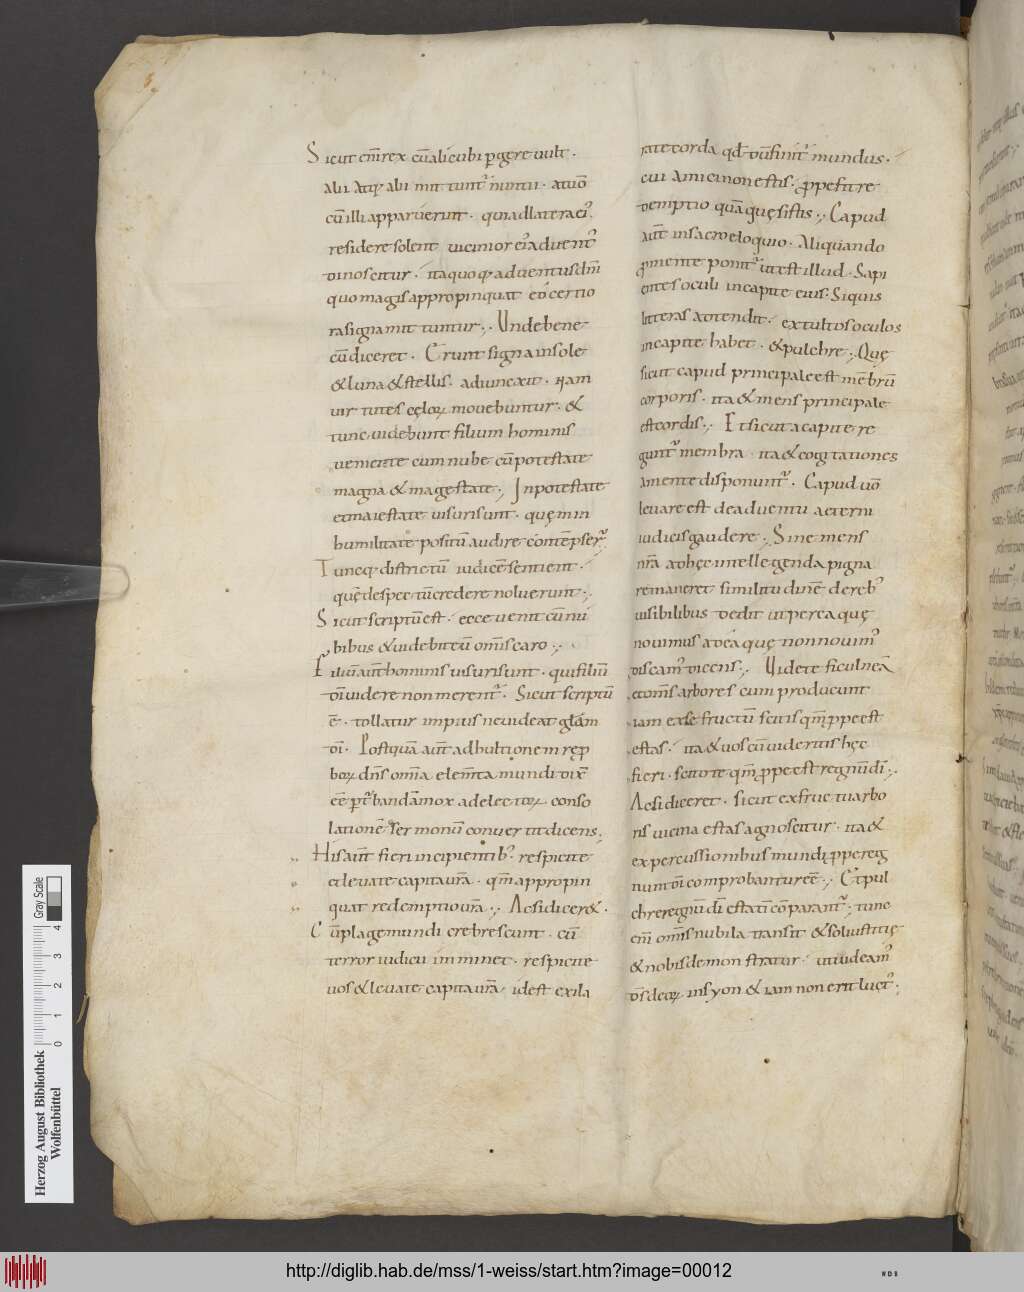 Sicut eni rex cū alicubi pgere uult.
alii atq; alii mittunt nuntii. at uō
cū illi apparuerunt. qui ad latera ei'
residere solent uicinior ei' aduent'
dinoscitur. ita quoq; aduentus dn̄i
quo magis appropinquat eo certio
ra signa mittuntur. Unde bene
cū diceret. Erunt signa in sole
& luna & stellis. adiunexit. nam
uirtutes cęloꝝ mouebuntur. &
tunc uidebunt filium hominis
uenientem cum nube cū potestate
magna & magestate. In potestate
et maiestate uisuri sunt. quem in
humilitate positū audire contēpser̄.
Tuncq; districtū iudicē sentient.
quē despectū credere noluerunt.
Sicut scriptū est. ecce uenit cū nu
bibus & uidebit eū om̄is caro.
Filiū aut̄ hominis uisuri sunt. qui filiū
dī uidere non merent'. Sicut scriptū
ē. tollatur impius ne uideat glām
dī. Postquā aut̄ adhultionem rep
boꝝ dn̄s om̄ia elem̄ta mundi dix̄
ēē pt'bandā mox ad electoꝝ conso
lationē sermonū conuertit dicens.
His aut̄ fieri incipientib; respicite
et leuate capita ur̄a. qm̄ appropin
quat redemptio ur̄a. Ac si dicer&.
Cū plage mundi crebrescunt. cū
terror iudicii imminet. respicite
uos & leuate capita ur̄a. id est exila
rate corda qd̄ dū finit' mundus.
cui amici non estis. prope fit re
demptio quā quęsistis. Capud
aut̄ in sacro eloquio. Aliquando
p mente ponit' ut est illud. Sapi
entes oculi in capite eius. Si quis
litteras adtendit. ex tultos oculos
in capite habet. & pulchre. Que
sicut capud principale est mēbrū
corporis. ita & mens principale
est cordis. Et sicut a capite re
gunt' membra. ita & cogitationes
a mente disponunt'. Capud uō
leuare est de aduentu aeterni
iudicis gaudere. Sine mens
nr̄a ad hęc intellegenda pigra
remaneret similitudinē de reb'
uisibilibus dedit ut per ea quę
nouimus ad ea quę non nouim'
discam' dicens. Uidete ficulneā
et om̄s arbores cum producunt
iam ex se fructū scitis qm̄ ppe est
estas. ita & uos cū uideritis hęc
fieri. scitote qm̄ ppe est regnū dī.
Ac si diceret. sicut ex fructu arbo
ris uicina estas agnoscitur. ita &
ex percussionibus mundi ppe reg
num dī comprobantur eē. Et pul
chre regnū dī estati cōparant'. tunc
enī om̄is nubila transit & solustitię
& nobis demonstratur. ut uideam'
d̄s deoꝝ in syon & iam non erit luct'.
Herzog August Bibliothek
Wolfenbüttel
Gray Scale
0 1 2 3 4
http://diglib.hab.de/mss/1-weiss/start.htm?image=00012